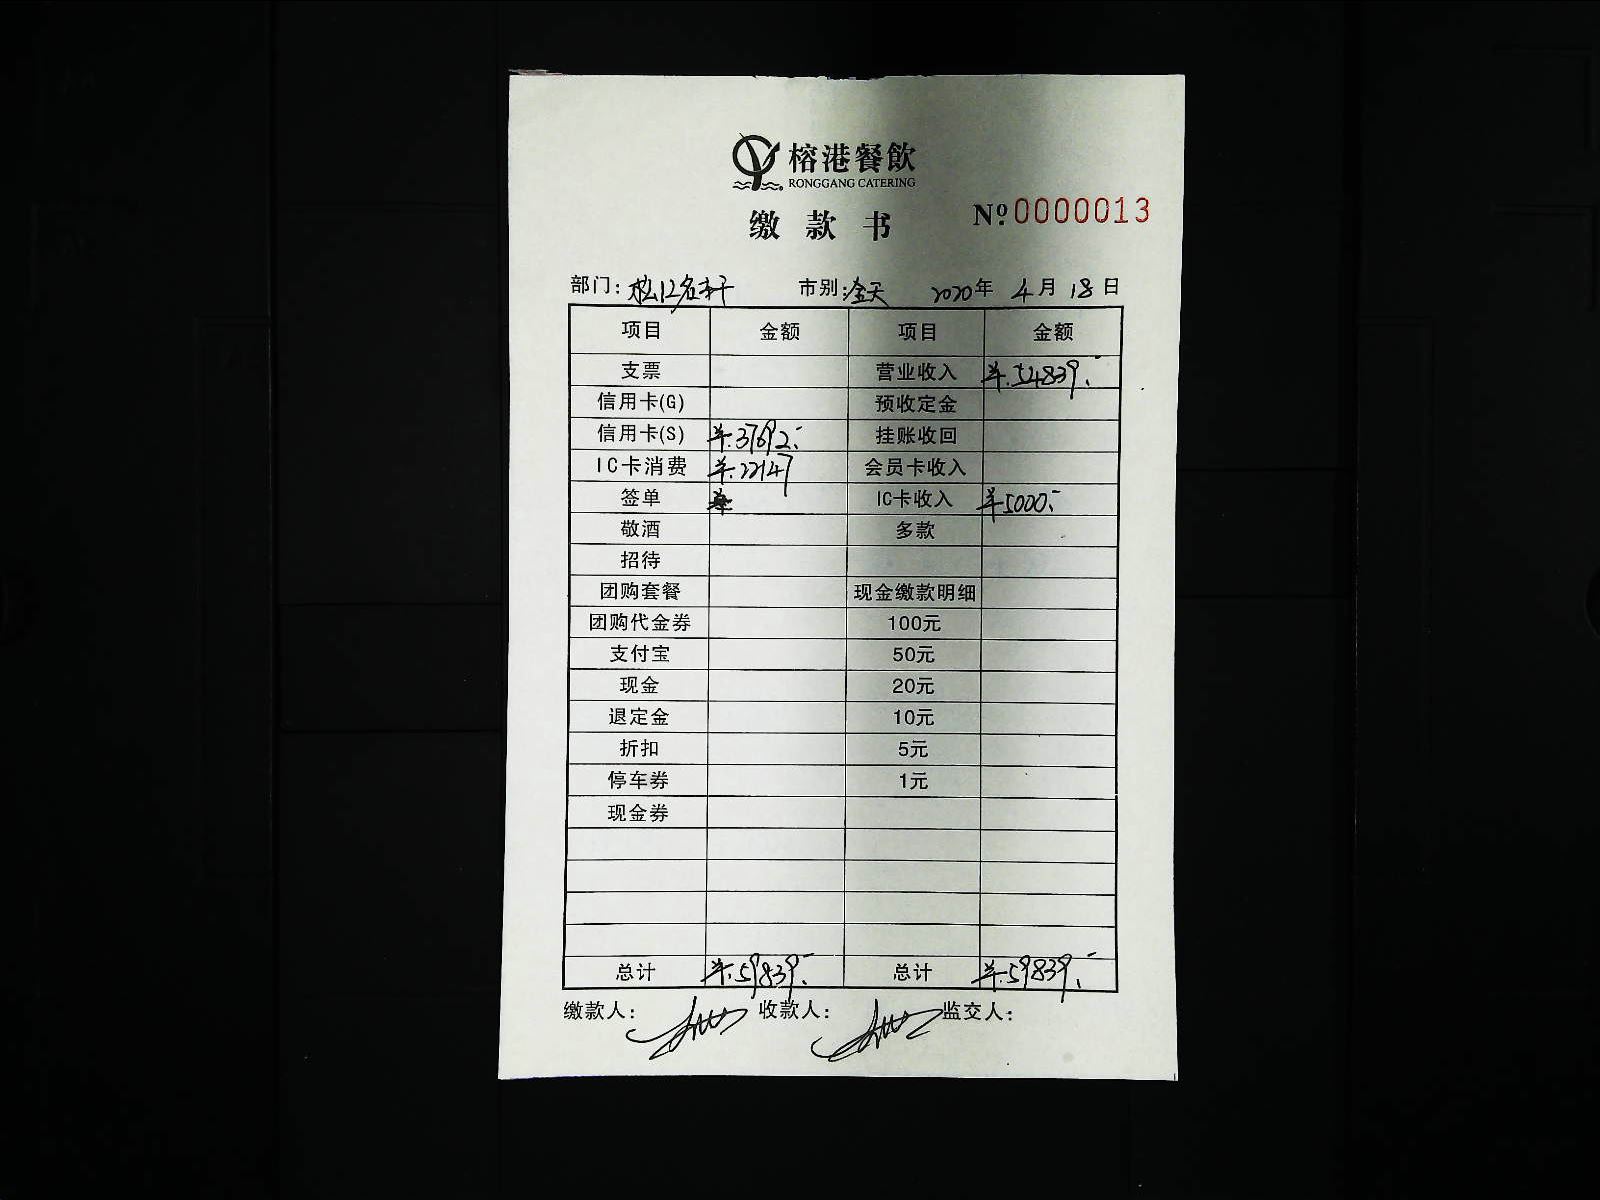 榕港餐飲
RONGGANG CATERING
缴款书 №0000013
部门: 松江名轩 市别: 全天 2020年 4月 18日
项目 金额 项目 金额
支票 营业收入 ¥.54839.-
信用卡(G) 预收定金
信用卡(S) ¥.37692.- 挂账收回
IC卡消费 ¥.22147 会员卡收入
签单 IC卡收入 ¥5000.-
敬酒 多款
招待
团购套餐 现金缴款明细
团购代金券 100元
支付宝 50元
现金 20元
退定金 10元
折扣 5元
停车券 1元
现金券
总计 ¥.59839.- 总计 ¥.59839.-
缴款人: 收款人: 监交人: